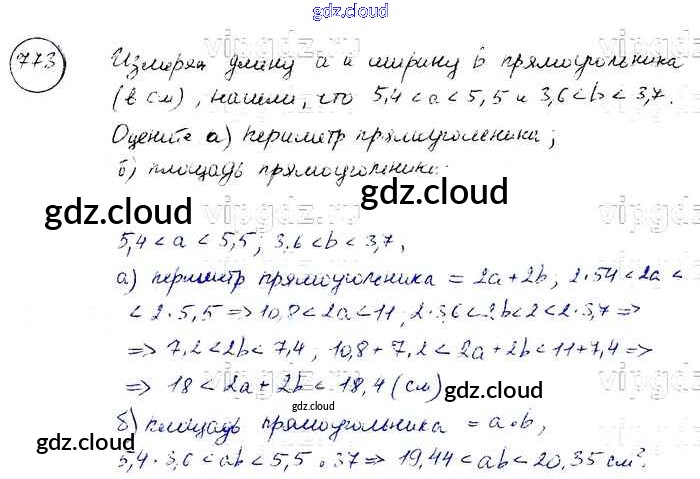 gdz.cloud
773
Измеряя длину a и ширину b прямоугольника
(в см), нашли, что 5,4 < a < 5,5 и 3,6 < b < 3,7.
Оцените а) периметр прямоугольника;
б) площадь прямоугольника.
gdz.cloud
gdz.cloud
5,4 < a < 5,5; 3,6 < b < 3,7,
а) периметр прямоугольника = 2a + 2b; 2·54 < 2a <
< 2·5,5 => 10,8 < 2a < 11; 2·3,6 < 2b < 2 < 2·3,7 =>
=> 7,2 < 2b < 7,4; 10,8 + 7,2 < 2a + 2b < 11 + 7,4 =>
=> 18 < 2a + 2b < 18,4 (см)
gdz.cloud
б) площадь прямоугольника = a·b,
gdz.cloud
gdz.cloud
5,4·3,6 < ab < 5,5·37 => 19,44 < ab < 20,35 см².